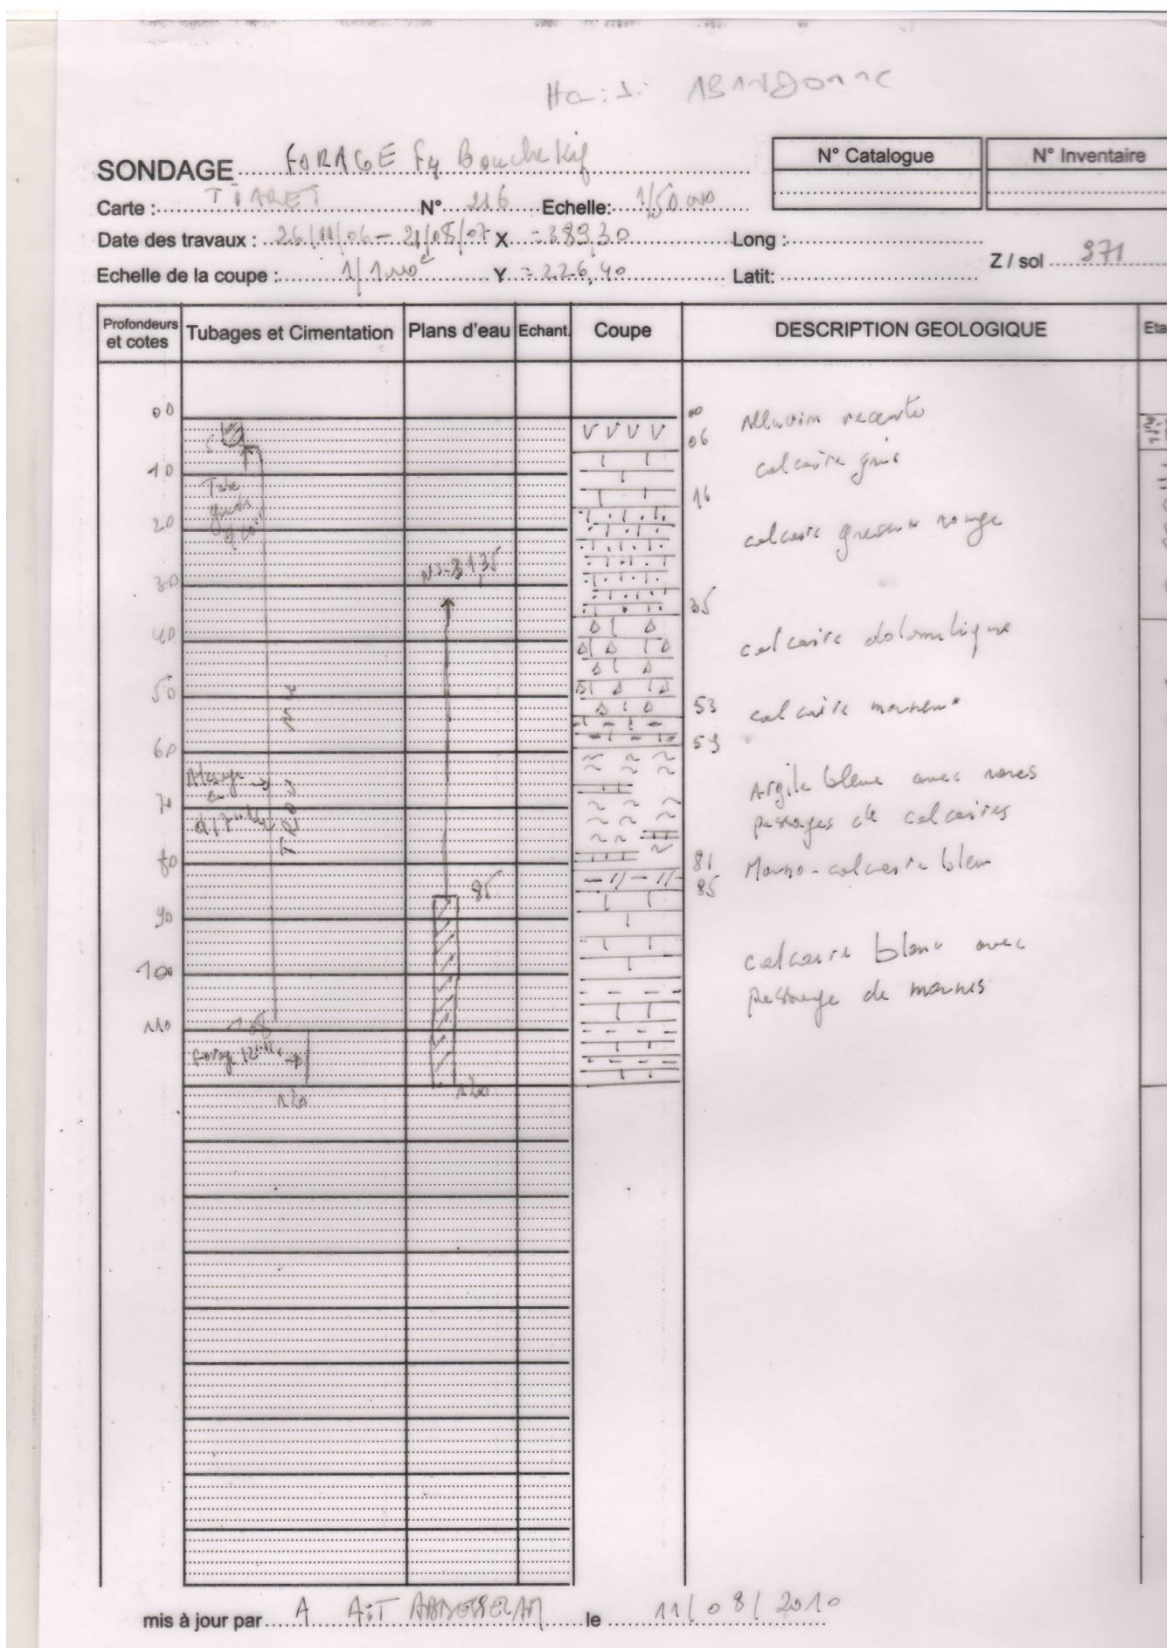 ABANDONNE
SONDAGE FORAGE F4 Bouchekif
N° Catalogue
N° Inventaire
Carte : TIARET N° 216 Echelle: 1/50 000
Date des travaux : 26/11/06 – 21/08/07 X = 389,30 Long :
Z / sol 971
Echelle de la coupe : Y = 226,40 Latit:
Profondeurs et cotes
Tubages et Cimentation
Plans d'eau
Echant.
Coupe
DESCRIPTION GEOLOGIQUE
Eta
00
00 Alluvion recente
06
calcaire gris
10
16
Tube
guide
20
calcaire greseux rouge
NS = 31,35
30
35
40
calcaire dolomitique
50
53 calcaire marneux
59
60
Alesage
en
TROU NU
70
Argile bleue avec rares
passages de calcaires
80
81 Marno-calcaire bleu
85
85
90
100
calcaire blanc avec
passage de marnes
108
110
Forage 12"1/4
120
120
mis à jour par A AIT ABDESSELAM le 11/08/2010